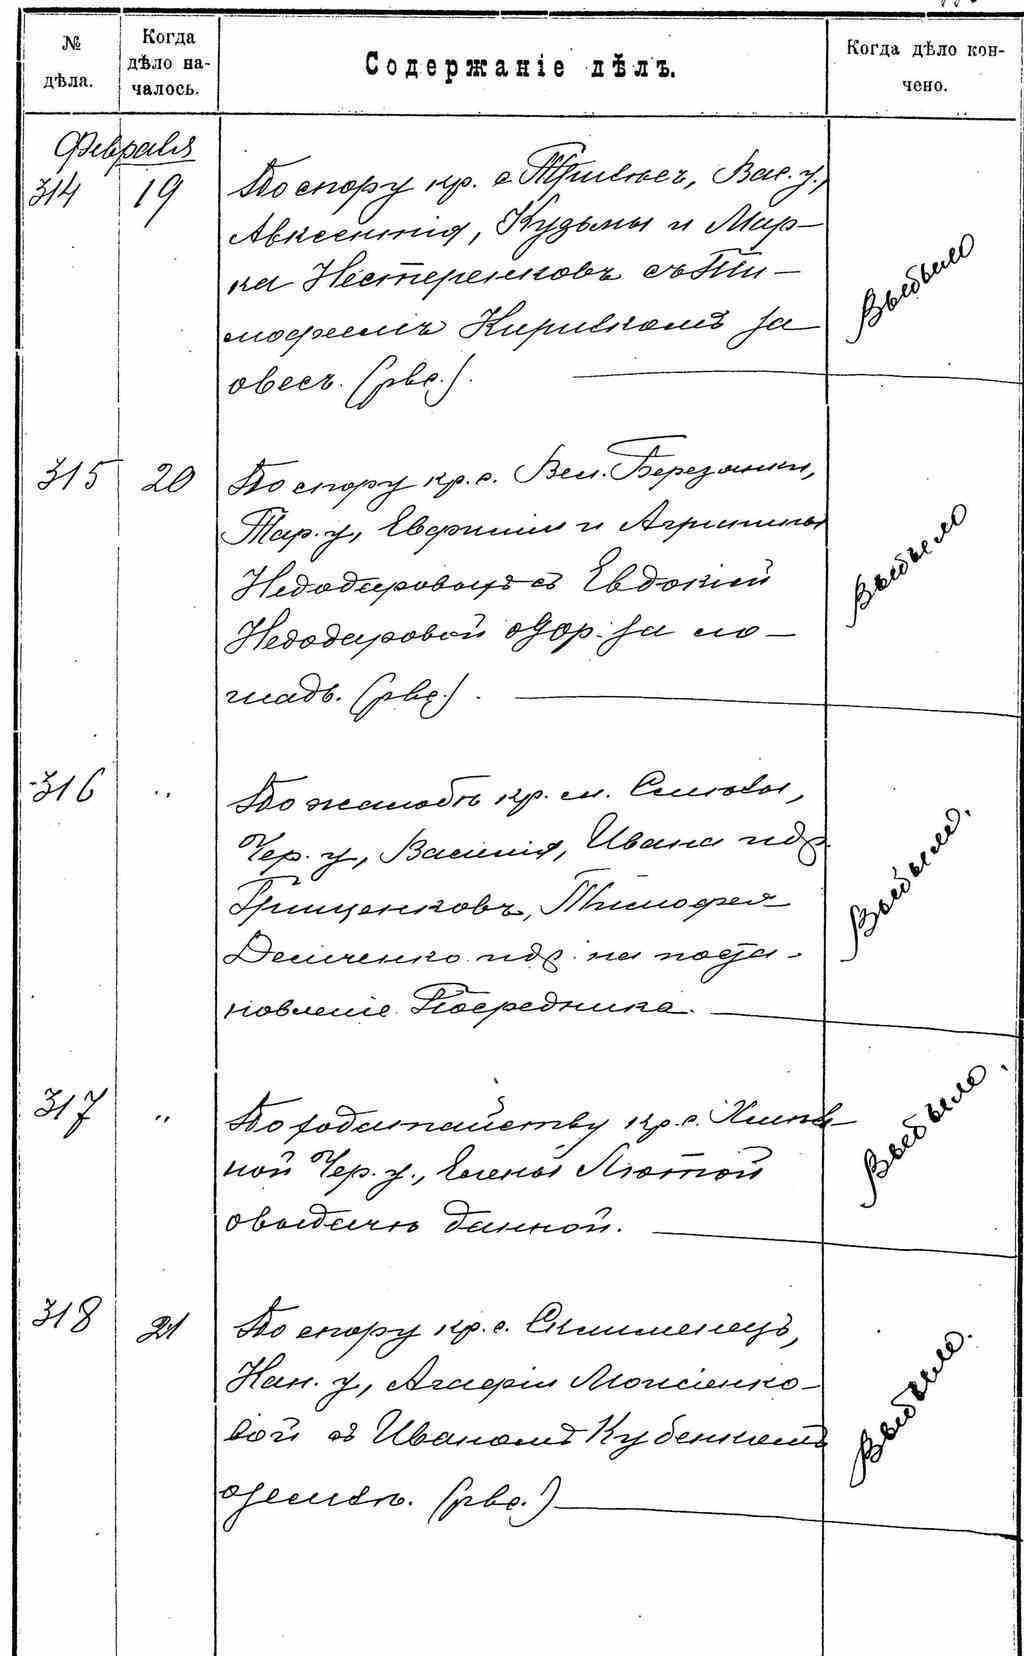 № дѣла.
Когда дѣло началось.
Содержаніе дѣлъ.
Когда дѣло кончено.
Февраля
314 19 По спору кр. с. Триліс, Вас. у.,
Авксентія, Кузьмы и Мар-
ка Нестеренковъ съ Ти-
мофеемъ Кириєкомъ за
овесъ. (рвс.). Выбыло
315 20 По спору кр. с. Вел. Березанки,
Тар. у., Евфиміи и Агрипины
Недодаровыхъ съ Евдокіей
Недодаровой за ло-
шадь. (рвс.). Выбыло
316 " По жалобѣ кр. м. Смѣлы,
Чер. у., Василія, Ивана и др.
Грищенковъ, Тимофея
Демченко и др. на поста-
новленіе Посредника. Выбыло.
317 " По ходатайству кр. с. Хлыст-
ной Чер. у., Елены Лютой
о выдачѣ данной. Выбыло.
318 21 По спору кр. с. Склименецъ,
Кан. у., Агафіи Моисіенко-
вой съ Иваномъ Кубенкомъ
о землѣ. (рвс.) Выбыло.